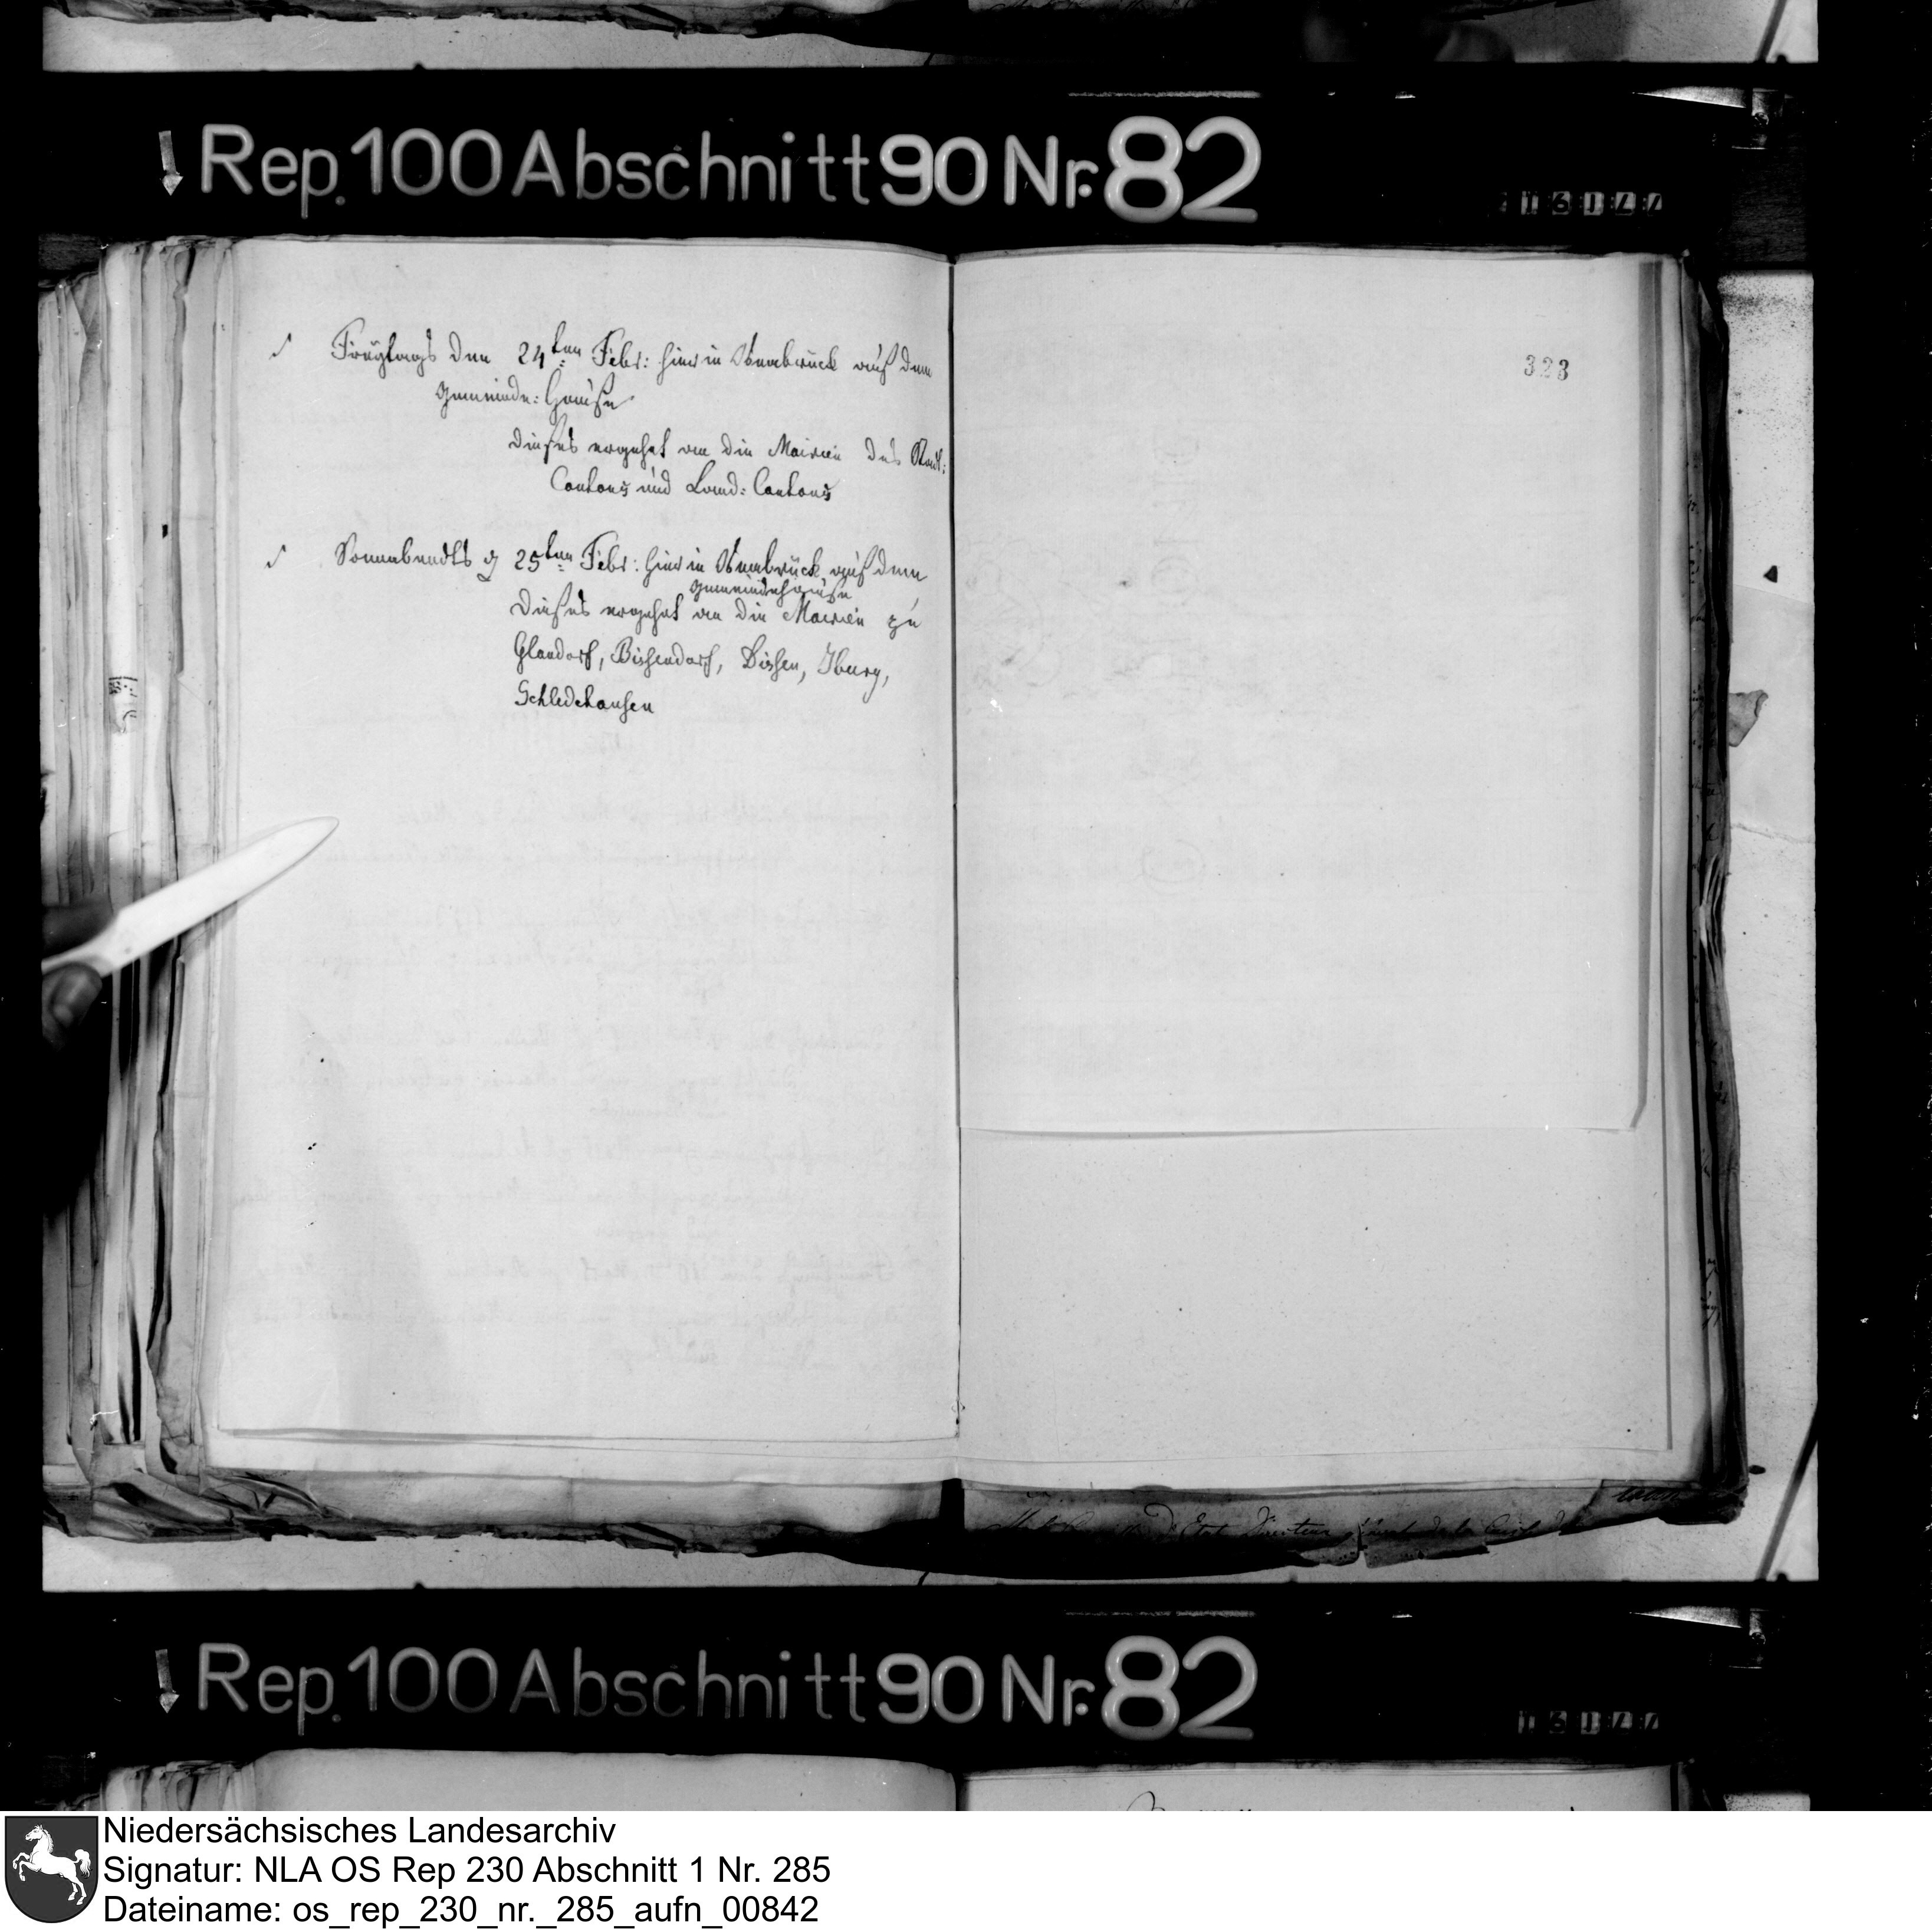 Rep. 100 Abschnitt 90 Nr. 82
Freytags den 24ten Febr: hier in Osnabrück auf dem
Gemeinde: Hause
dieses ergehet an die Mairien des Stadt:
Cantons und Land: Cantons
Sonnabendts d 25ten Febr: hier in Osnabrück auf dem
Gemeindehause
dieses ergehet an die Mairien zu
Glandorf, Bissendorf, Dissen, Iburg,
Schledehausen
323
Rep. 100 Abschnitt 90 Nr. 82
Niedersächsisches Landesarchiv
Signatur: NLA OS Rep 230 Abschnitt 1 Nr. 285
Dateiname: os_rep_230_nr._285_aufn_00842